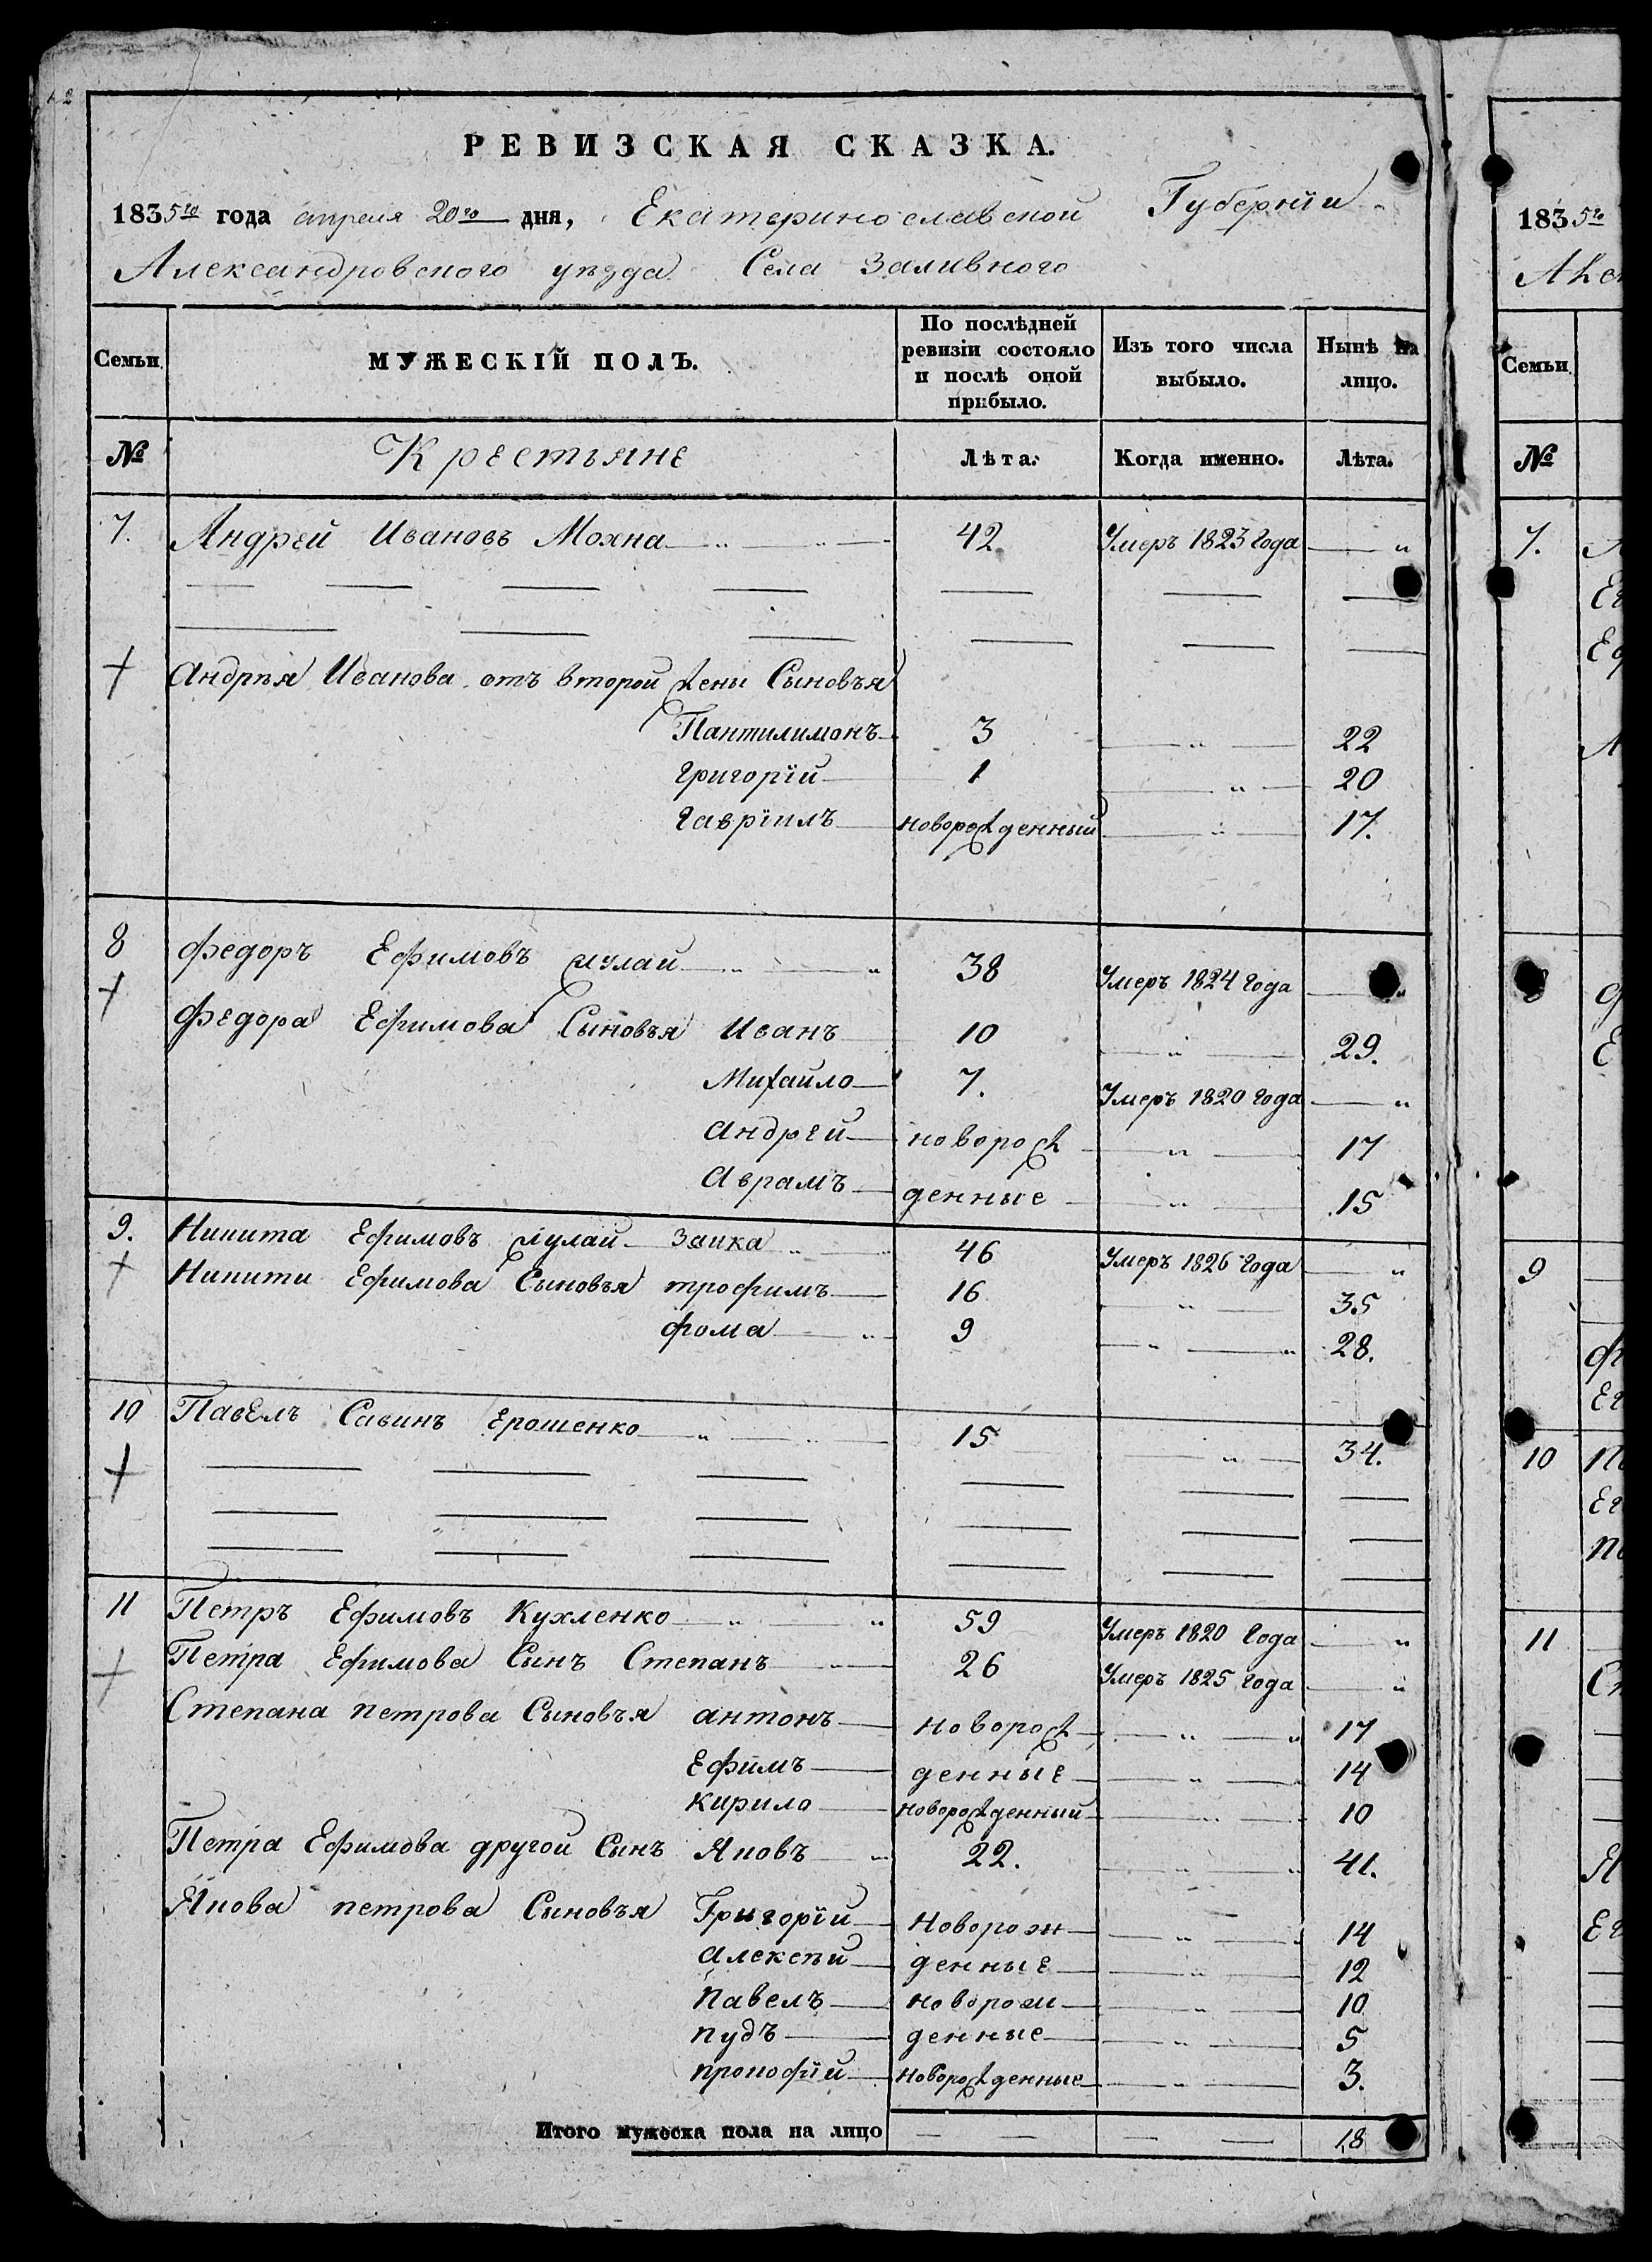 РЕВИЗСКАЯ СКАЗКА.
1835го года апреля 20го дня, Екатеринославской Губернїи
Александровского уѣзда Села Заливного
Семьи
МУЖЕСКІЙ ПОЛЪ.
По послѣдней ревизіи состояло и послѣ оной прибыло.
Изъ того числа выбыло.
Нынѣ на лицо.
№ Крестьяне Лѣта. Когда именно. Лѣта.
7. Андрей Ивановъ Мохна 42 Умеръ 1823 года
Андрѣя Иванова отъ второй жены Сыновъя
Пантилимонъ 3 22
Григорїй 1 20
Гаврїилъ новорожденный 17.
8 Федоръ Ефимовъ 38 Умеръ 1824 года
Федора Ефимова Сыновъя Иванъ 10 29.
Михайло 7. Умеръ 1820 года
Андрей новорож 17
Аврамъ денные 15
9. Никита Ефимовъ Заика 46 Умеръ 1826 года
Никити Ефимова Сыновъя трофимъ 16 35
фома 9 28.
10 Павелъ Савинъ Ерошенко 15 34.
11 Петръ Ефимовъ Кухленко 59 Умеръ 1820 года
Петра Ефимова Сынъ Степанъ 26 Умеръ 1825 года
Степана петрова Сыновъя антонъ новорож 17
Ефимъ денные 14
кирило новорожденный 10
Петра Ефимова другой Сынъ Яковъ 22. 41.
Якова петрова Сыновъя Григорїй Новорож 14
алексѣй денные 12
павелъ новорож 10
пудъ денные 5
прокофїй новорожденные 3.
Итого мужеска пола на лицо 18
1835го
Семьи
№
7.
9
10
11